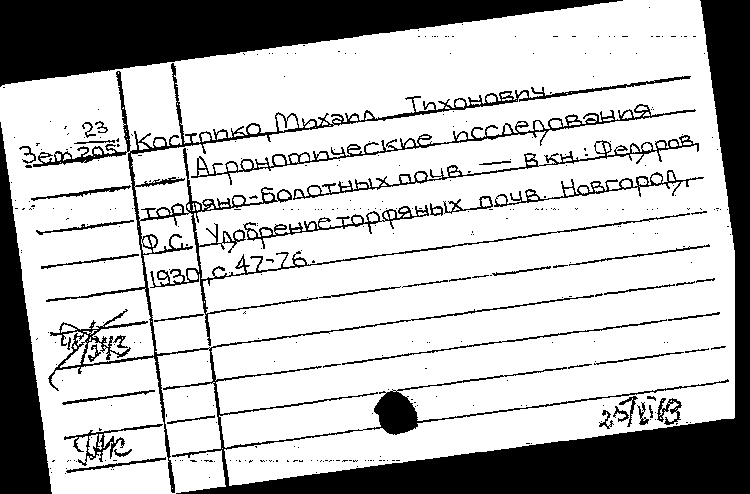 23
Зем 205 Кострико, Михаил Тихонович.
Агрономические исследования
торфяно-болотных почв. — В кн.: Федоров,
Ф.С. Удобрение торфяных почв. Новгород,
1930, с. 47-76.
48/343
25/VI 63